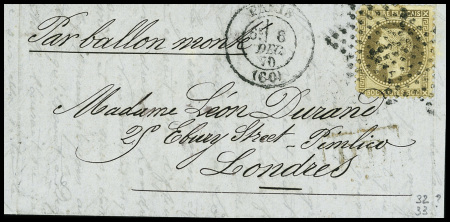 Par ballon monté
6
DEC.
70
(60)
Madame Léon Durand
Ebury Street - Pimlico
Londres
32 ?
33